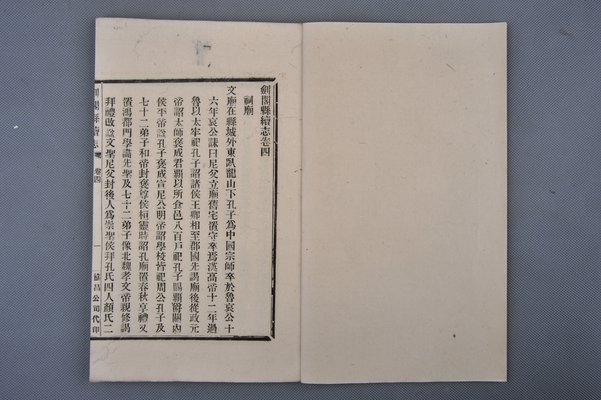 劍閣縣續志卷四
祠廟
文廟在縣城外東臥龍山下孔子爲中國宗師卒於魯哀公十
六年哀公誄曰尼父立廟舊宅置守卒爲漢高帝十二年過
魯以太牢祀孔子詔諸侯王卿相至郡國先謁廟後從政元
帝詔太師褒成君霸以所食邑八百戶祀孔子賜霸爵關內
侯平帝諡孔子褒成宣尼公明帝詔學校皆祀周公孔子及
七十二弟子和帝封褒尊侯桓靈時詔孔廟置春秋享禮又
置鴻都門學畫先聖及七十二弟子像北魏孝文帝親修謁
拜禮改諡文聖尼父封後人爲崇聖侯拜孔氏四人顏氏二
劍閣縣續志 卷四 一 協昌公司代印